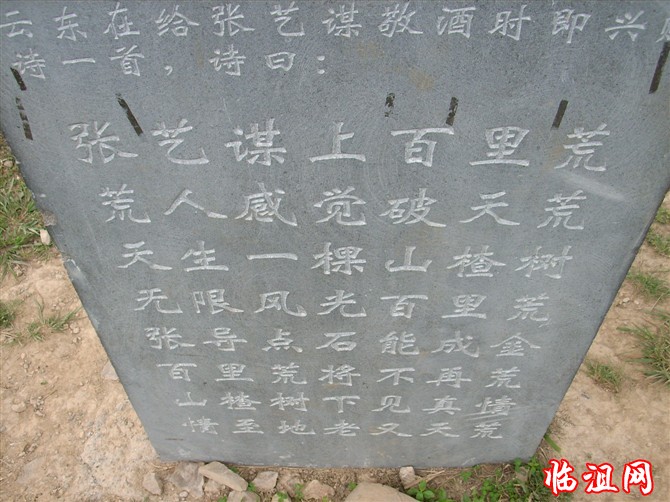 云东在给张艺谋敬酒时即兴
诗一首，诗曰：
张艺谋上百里荒
荒人感觉破天荒
天生一棵山楂树
无限风光百里荒
张导点石能成金
百里荒将不再荒
山楂树下见真情
情至地老又天荒
临沮网